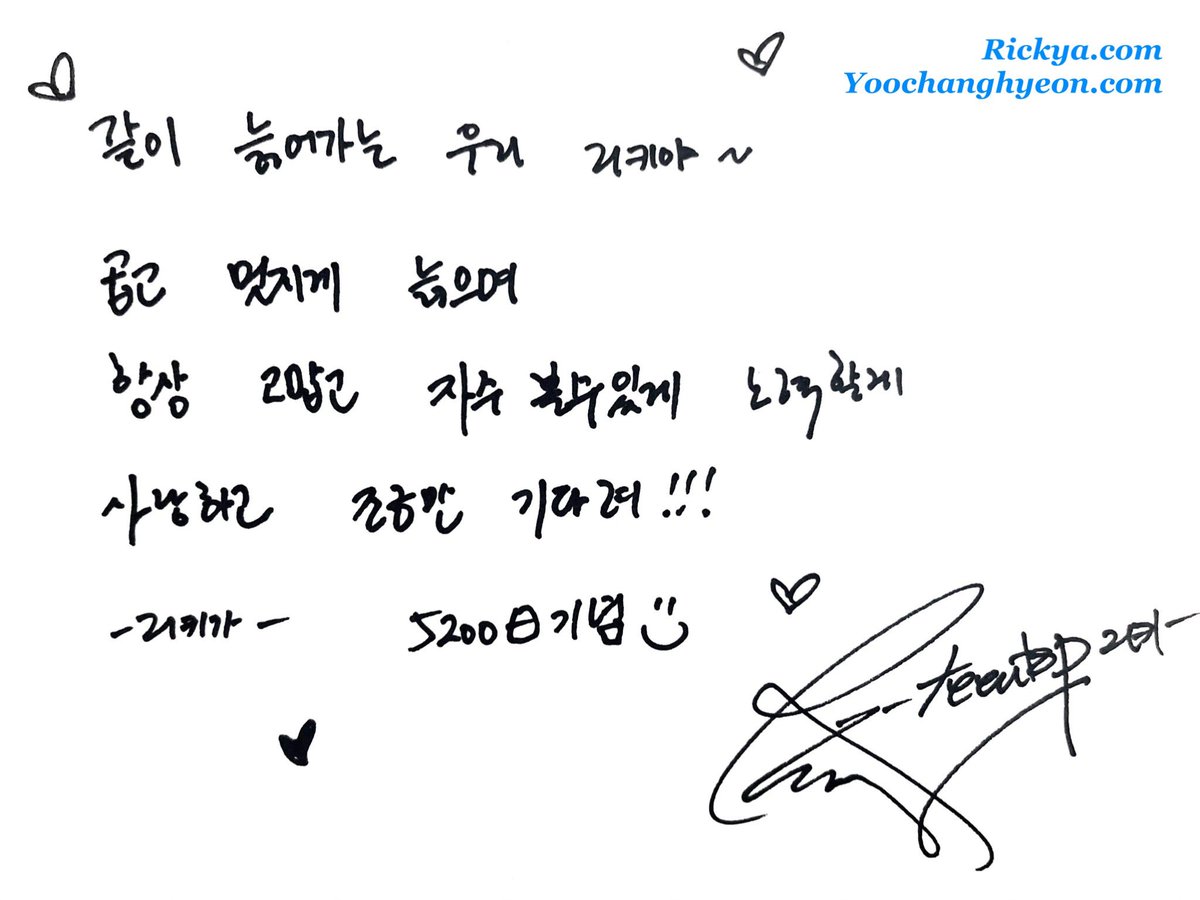 Rickya.com
Yoochanghyeon.com
같이 늙어가는 우리 리키야~
곱고 멋지게 늙으며
항상 고맙고 자주 볼수있게 노력할게
사랑하고 조금만 기다려!!!
-리키가- 5200日기념
-teentop 리키-